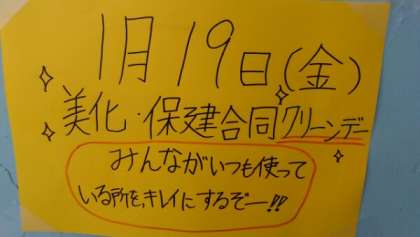 1月19日(金)
美化・保建合同クリーンデー
みんながいつも使って
いる所を、キレイにするぞー!!